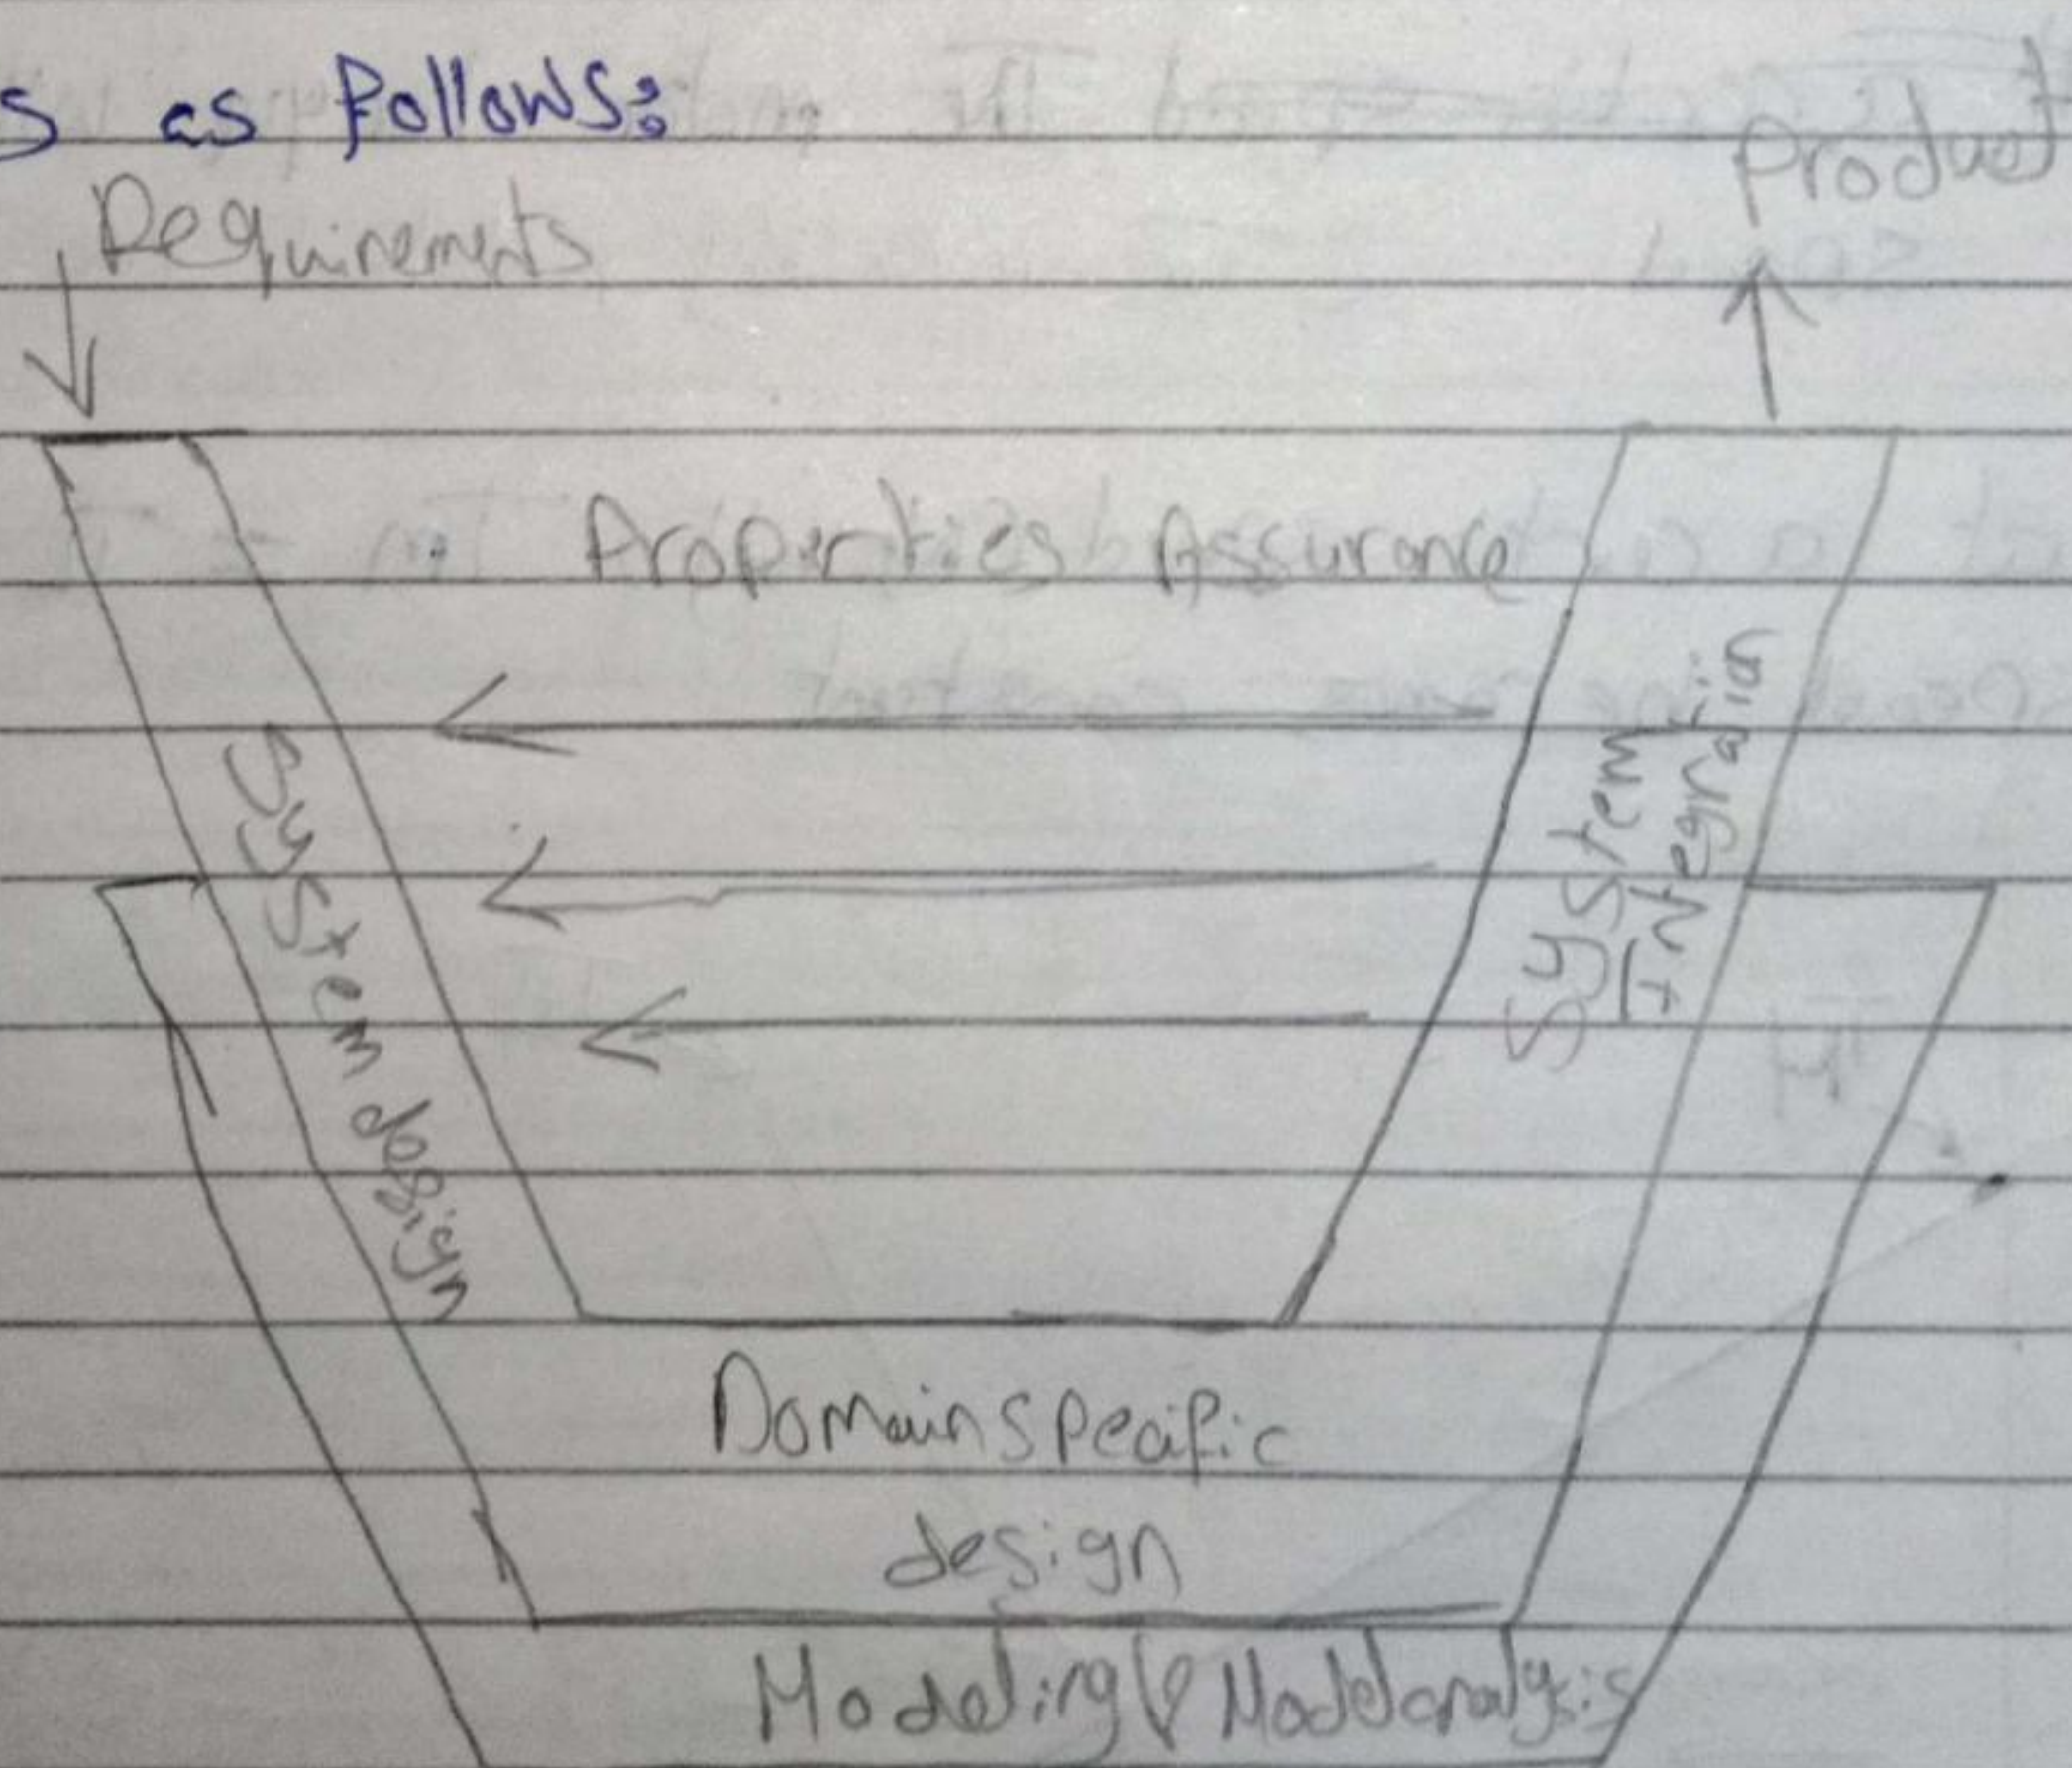 s as follows:
Requirements
Product
Properties Assurance
System design
System
INtegration
Domain specific
design
Modeling & Model analysis